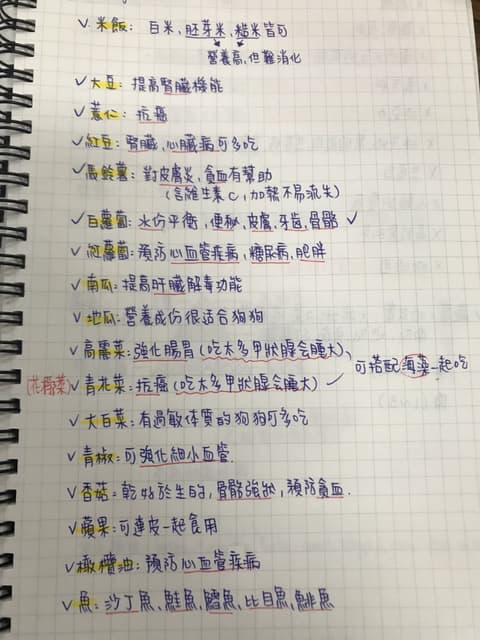 ✓ 米飯: 白米,胚芽米,糙米皆可
營養高,但難消化
✓ 大豆: 提高腎臟機能
✓ 薏仁: 抗癌
✓ 紅豆: 腎臟,心臟病可多吃
✓ 馬鈴薯: 對皮膚炎,貧血有幫助
(含維生素C,加熱不易流失)
✓ 白蘿蔔: 水份平衡,便秘,皮膚,牙齒,骨骼 ✓
✓ 紅蘿蔔: 預防心血管疾病,糖尿病,肥胖
✓ 南瓜: 提高肝臟解毒功能
✓ 地瓜: 營養成份很適合狗狗
✓ 高麗菜: 強化腸胃(吃太多甲狀腺會腫大)、
可搭配海藻一起吃
(花椰菜) ✓ 青花菜: 抗癌(吃太多甲狀腺會腫大) ✓
✓ 大白菜: 有過敏体質的狗狗可多吃
✓ 青椒: 可強化細小血管.
✓ 香菇: 乾始於生的,骨骼強狀,預防貧血.
✓ 蘋果: 可連皮一起食用
✓ 橄欖油: 預防心血管疾病
✓ 魚: 沙丁魚、鮭魚、鱈魚、比目魚,鯡魚